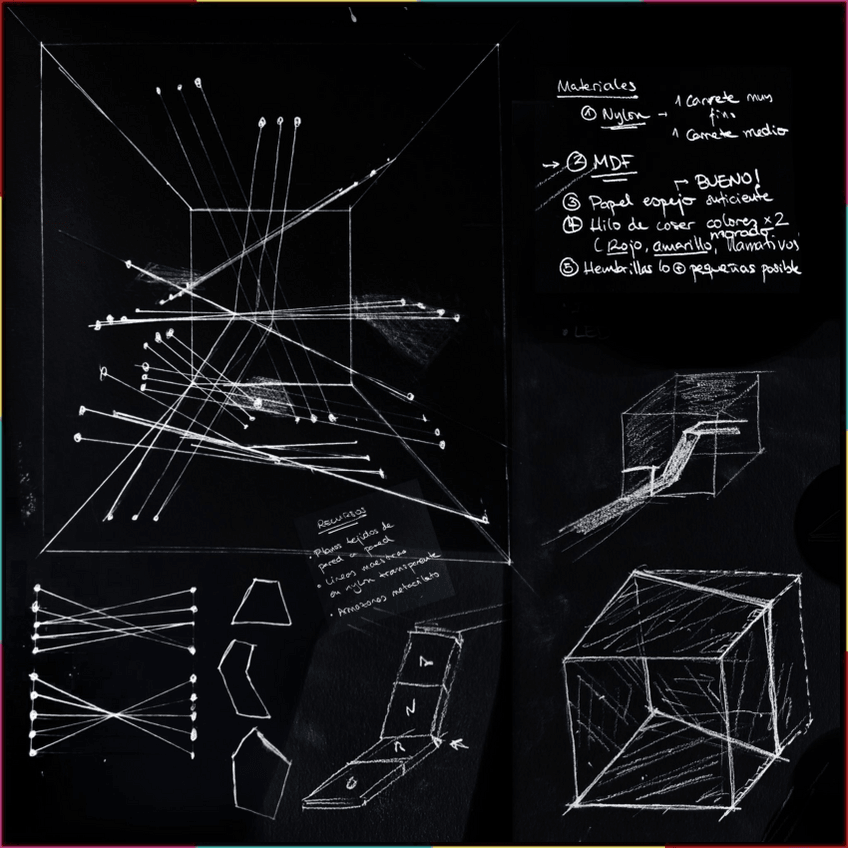 Materiales
① Nylon → 1 Carrete muy fino
1 Carrete medio
→ ② MDF
→ BUENO!
③ Papel espejo suficiente
④ Hilo de coser colores x2
morado
(Rojo, amarillo, llamativos
⑤ Hembrillas lo ⊕ pequeñas posible
RECURSOS
• Planos tejidos de
pared a pared
• Líneas maestras
en nylon transparente
• Armazones